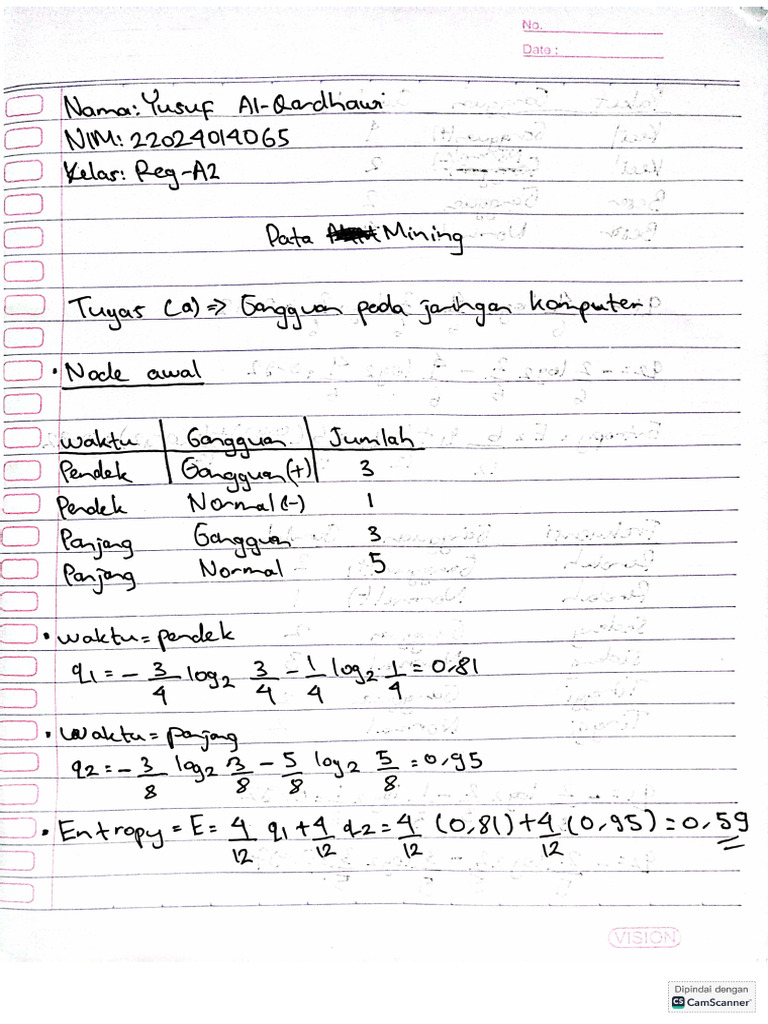 No.
Date :
Nama: Yusuf Al-Qardhawi
NIM: 22024014065
Kelas: Reg-A2
Data Mining
Tugas (a) => Gangguan pada jaringan komputer
• Node awal
waktu | Gangguan | Jumlah
Pendek | Gangguan (+) | 3
Pendek Normal (-) 1
Panjang Gangguan 3
Panjang Normal 5
• waktu = pendek
q1 = - 3/4 log2 3/4 - 1/4 log2 1/4 = 0,81
• Waktu = panjang
q2 = - 3/8 log2 3/8 - 5/8 log2 5/8 = 0,95
• Entropy = E = 4/12 q1 + 4/12 q2 = 4/12 (0,81) + 4/12 (0,95) = 0,59
VISION
Dipindai dengan
CS CamScanner